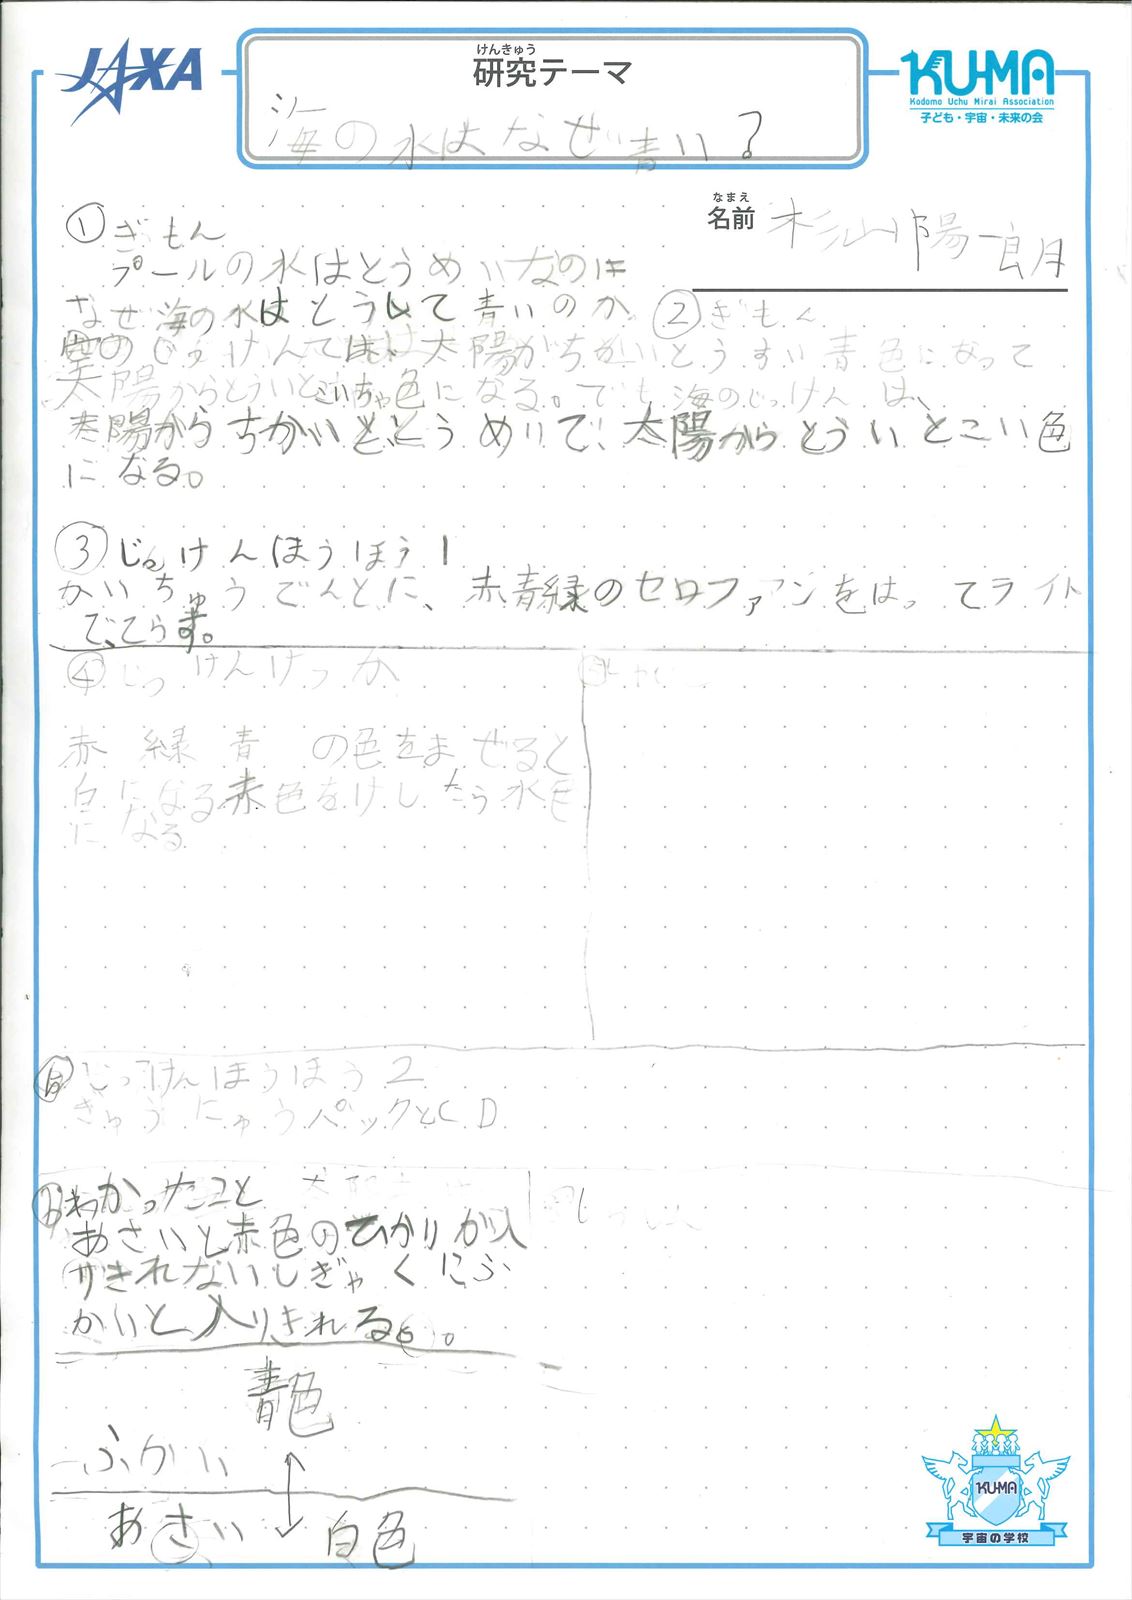 JAXA
けんきゅう
研究テーマ
KU-MA
Kodomo Uchu Mirai Association
子ども・宇宙・未来の会
海の水はなぜ青い?
なまえ
名前 杉山陽一朗
① ぎもん
プールの水はとうめいなのに
なぜ海の水はとうして青いのか
② ぎもん
空のじっけんでは、太陽がちかいとうすい青色になって
太陽からとういとこいちゃ色になる。でも海のじっけんは、
太陽からちかいととうめいで、太陽からとういとこい色
になる。
③ じっけんほうほう1
かいちゅうでんとに、赤青緑のセロファンをはってライト
でてらす。
④ じっけんけっか
赤 緑 青 の色をまぜると
白になる赤色をけしたら水色
になる
⑤
じっけんほうほう2
ぎゅうにゅうパックとCD
わかったこと
あさいと赤色のひかりが入
りきれないしぎゃくにふ
かいと入りきれる。
青色
ふかい
あさい 白色
KU-MA
宇宙の学校